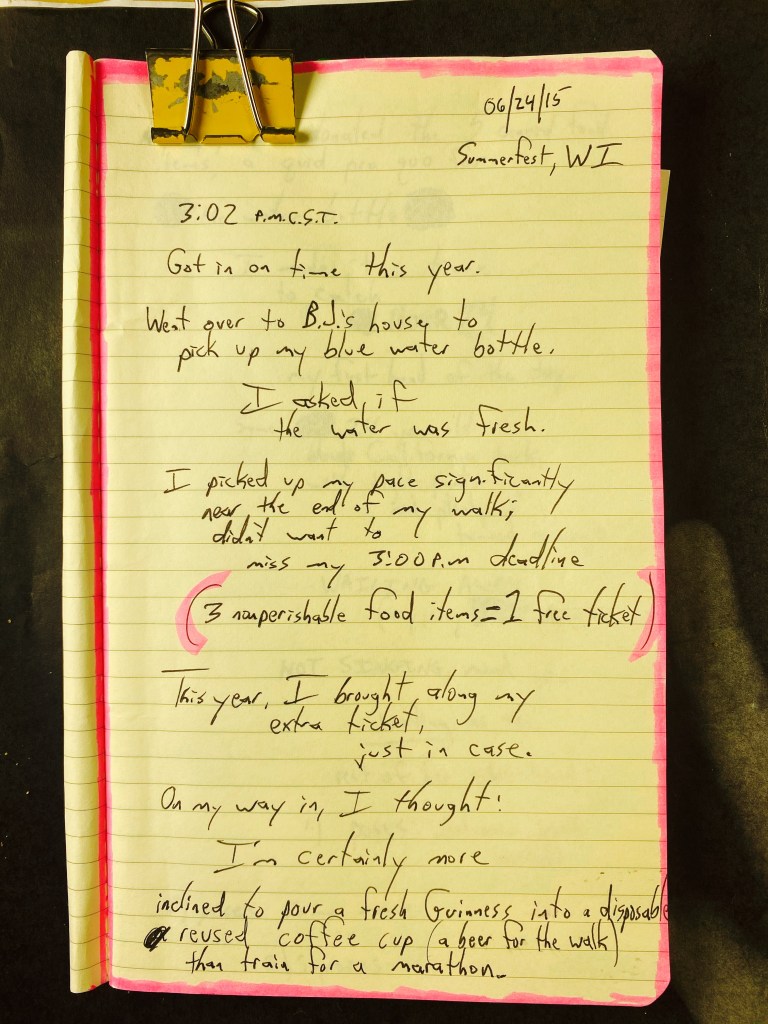 06/24/15
Summerfest, WI
3:02 P.M.C.S.T.
Got in on time this year.
Went over to B.J.'s house to
pick up my blue water bottle.
I asked, if
the water was fresh.
I picked up my pace significantly
near the end of my walk;
didn't want to
miss my 3:00 P.m deadline
(3 nonperishable food items = 1 free ticket)
This year, I brought along my
extra ticket,
just in case.
On my way in, I thought:
I'm certainly more
inclined to pour a fresh Guinness into a disposable
reused coffee cup (a beer for the walk)
than train for a marathon.